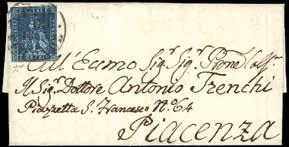 All' Ecmo Sigr. Sigr. Prone
Il Sigr. Dottore Antonio Trenchi
Piazzetta S. Francesco No. 64
Piacenza